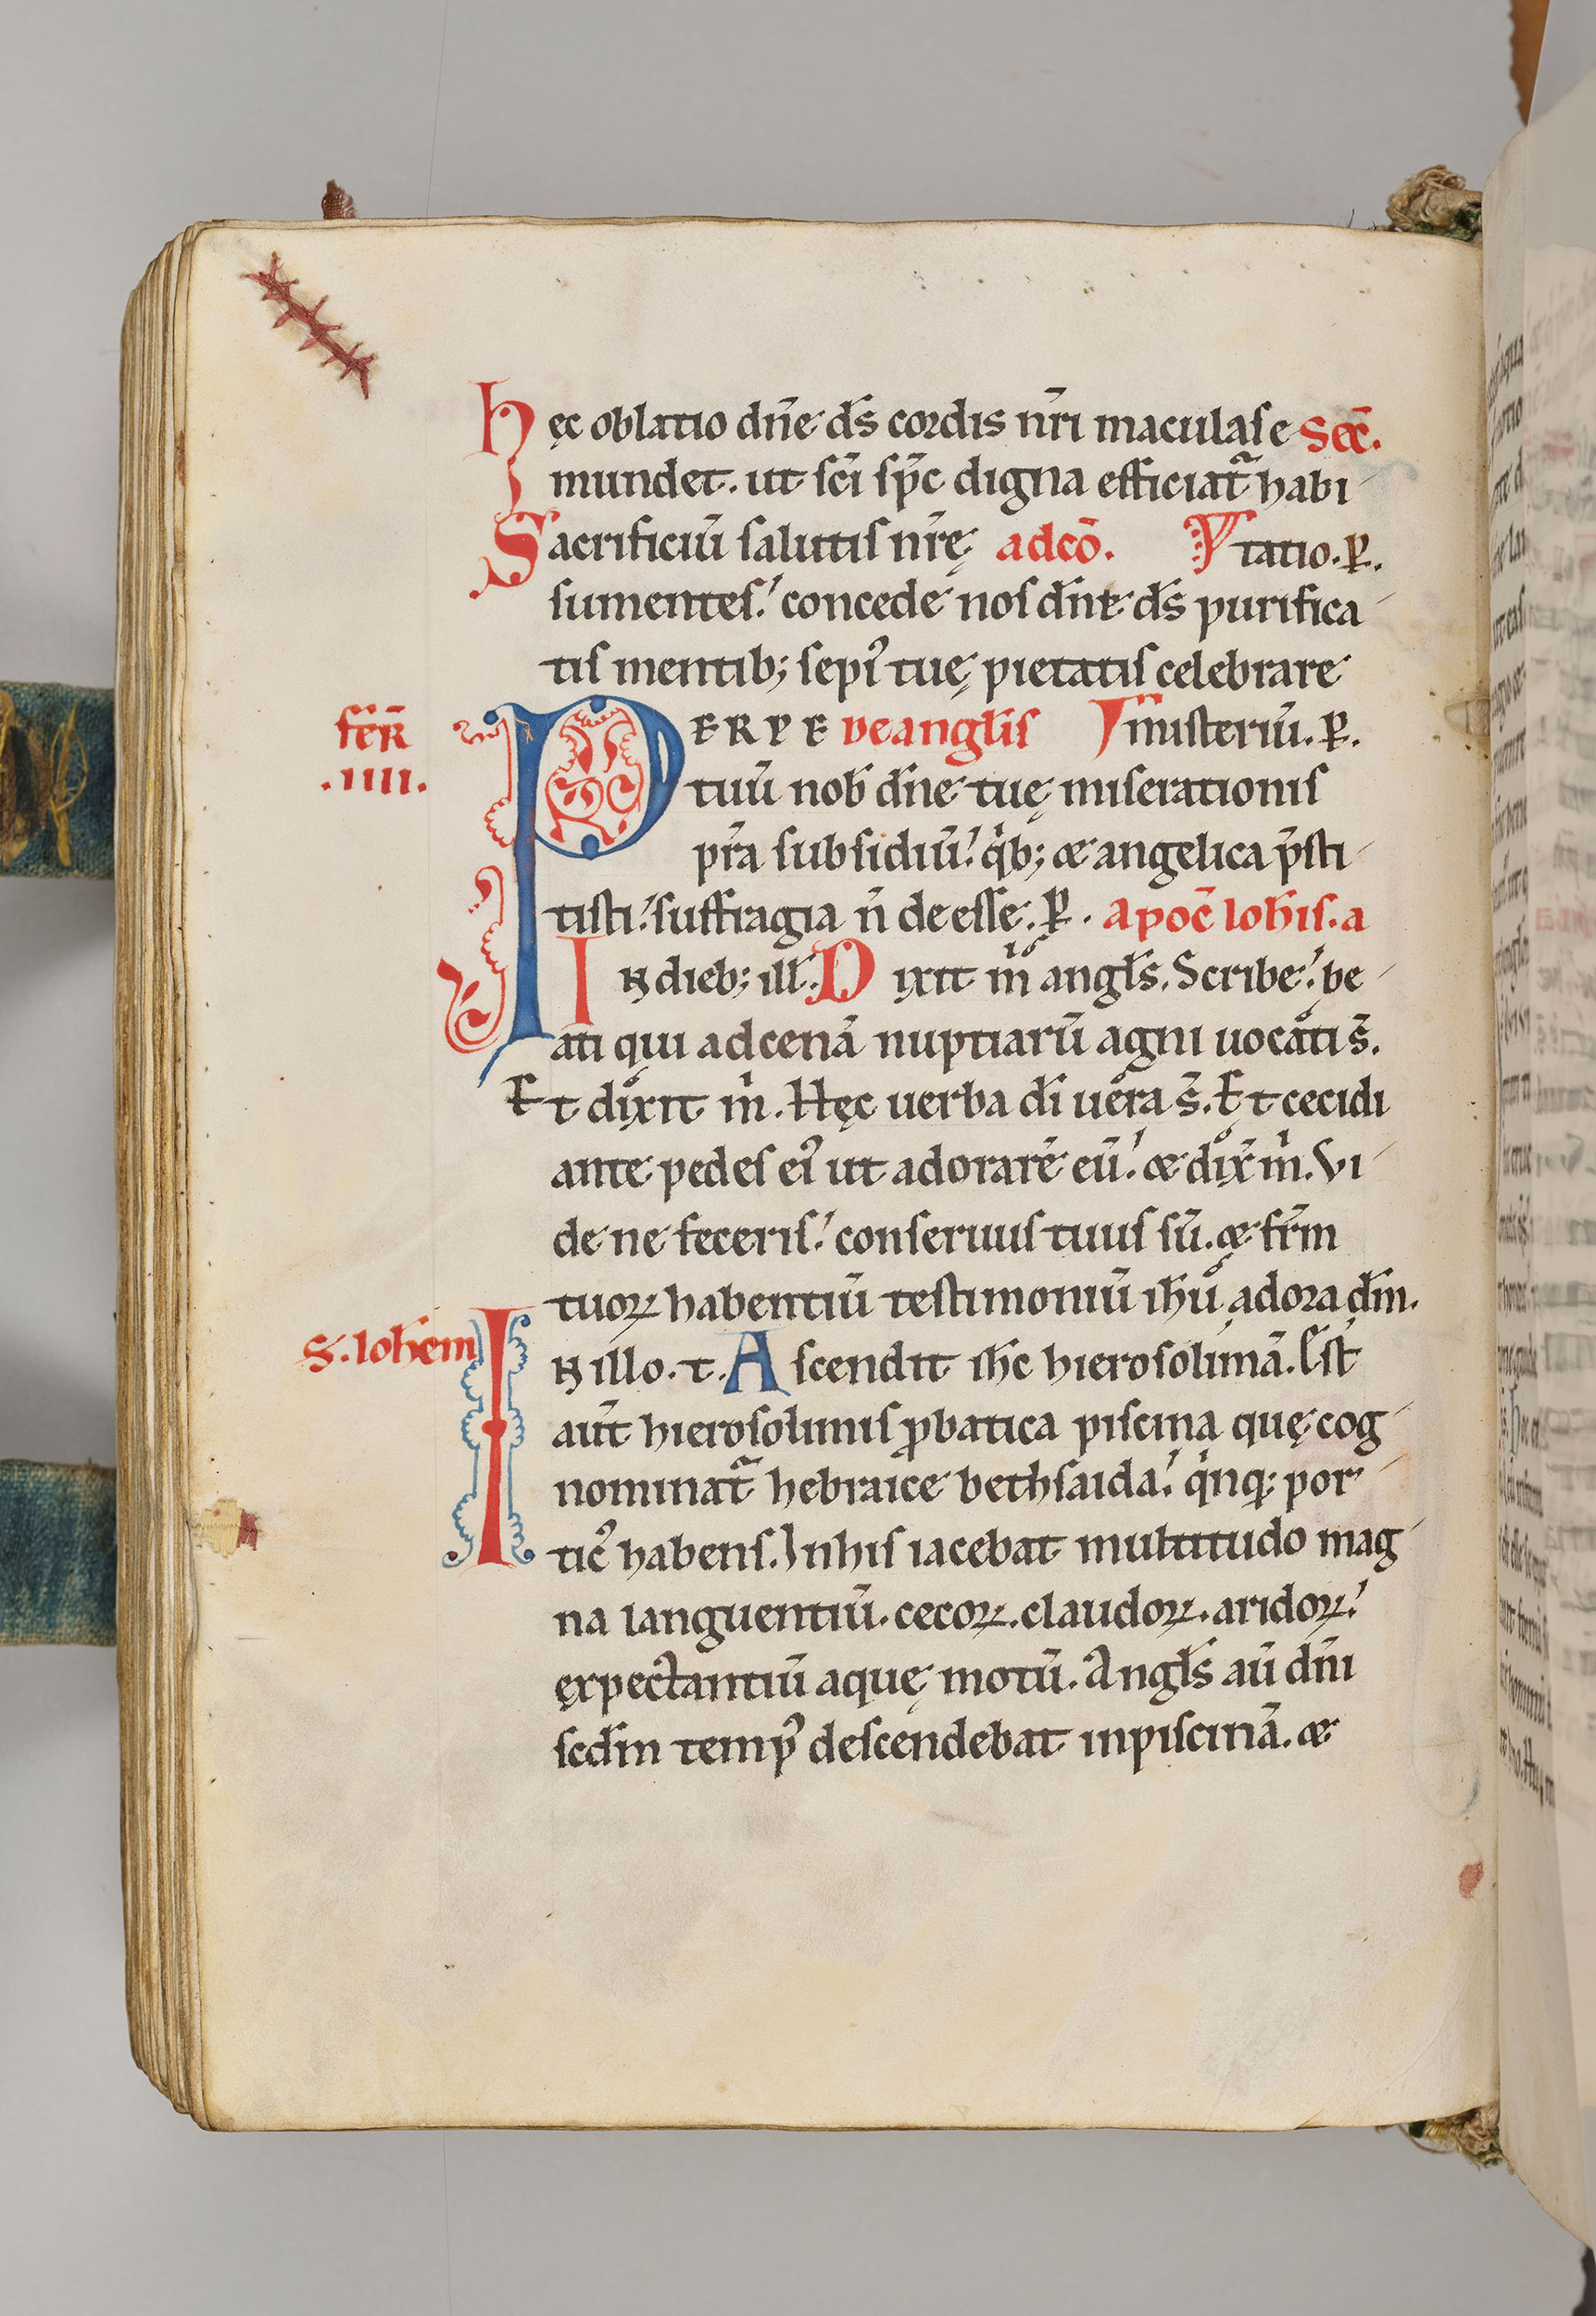 Hęc oblatio dn̄e ds̄ cordis nr̄i maculas e Sec̄.
mundet. ut sc̄i sp̄c digna efficiat᷑ habi
Sacrificiū salutis nr̄ę adcō. tatio. P̱.
sumentes. concede nos dn̄e ds̄ purifica
tis mentib; sep̄ tuę pietatis celebrare
fer̄ .IIII. PERPE De angl̄is misteriū. P̱.
tuū nob̄ dn̄e tuę miserationis
pr̄a subsidiū. qͥb; æ angelica p̄sti
tisti. suffragia n̄ deesse. P̱. Apoc̄ Ioh̄is. a
IN dieb; ill̄. Dixit m̄ angl̄s. Scribe. be
ati qui ad cenā nuptiarū agni uocati s̄.
Et dixit mͥ. Hęc uerba dī uera s̄. Et cecidi
ante pedes ei᾽ ut adorarē eū. æ dix̄ mͥ. Vi
de ne feceris. conseruus tuus sū. æ fr̄m
tuoꝝ habentiū testimoniū ih̄u adora dm̄.
S. Ioh̄em IN illo. t. Ascendit ih̄c hierosolimā. Est
aut̄ hierosolimis ꝓbatica piscina quę cog
nominat᷑ hebraice bethsaida. qͥnq; por
tic᾽ habens. In his iacebat multitudo mag
na languentiū. cecoꝝ. claudoꝝ. aridoꝝ.
expectantiū aquę motū. Angl̄s aū dn̄i
scdm̄ temp᾽ descendebat in piscinā. æ